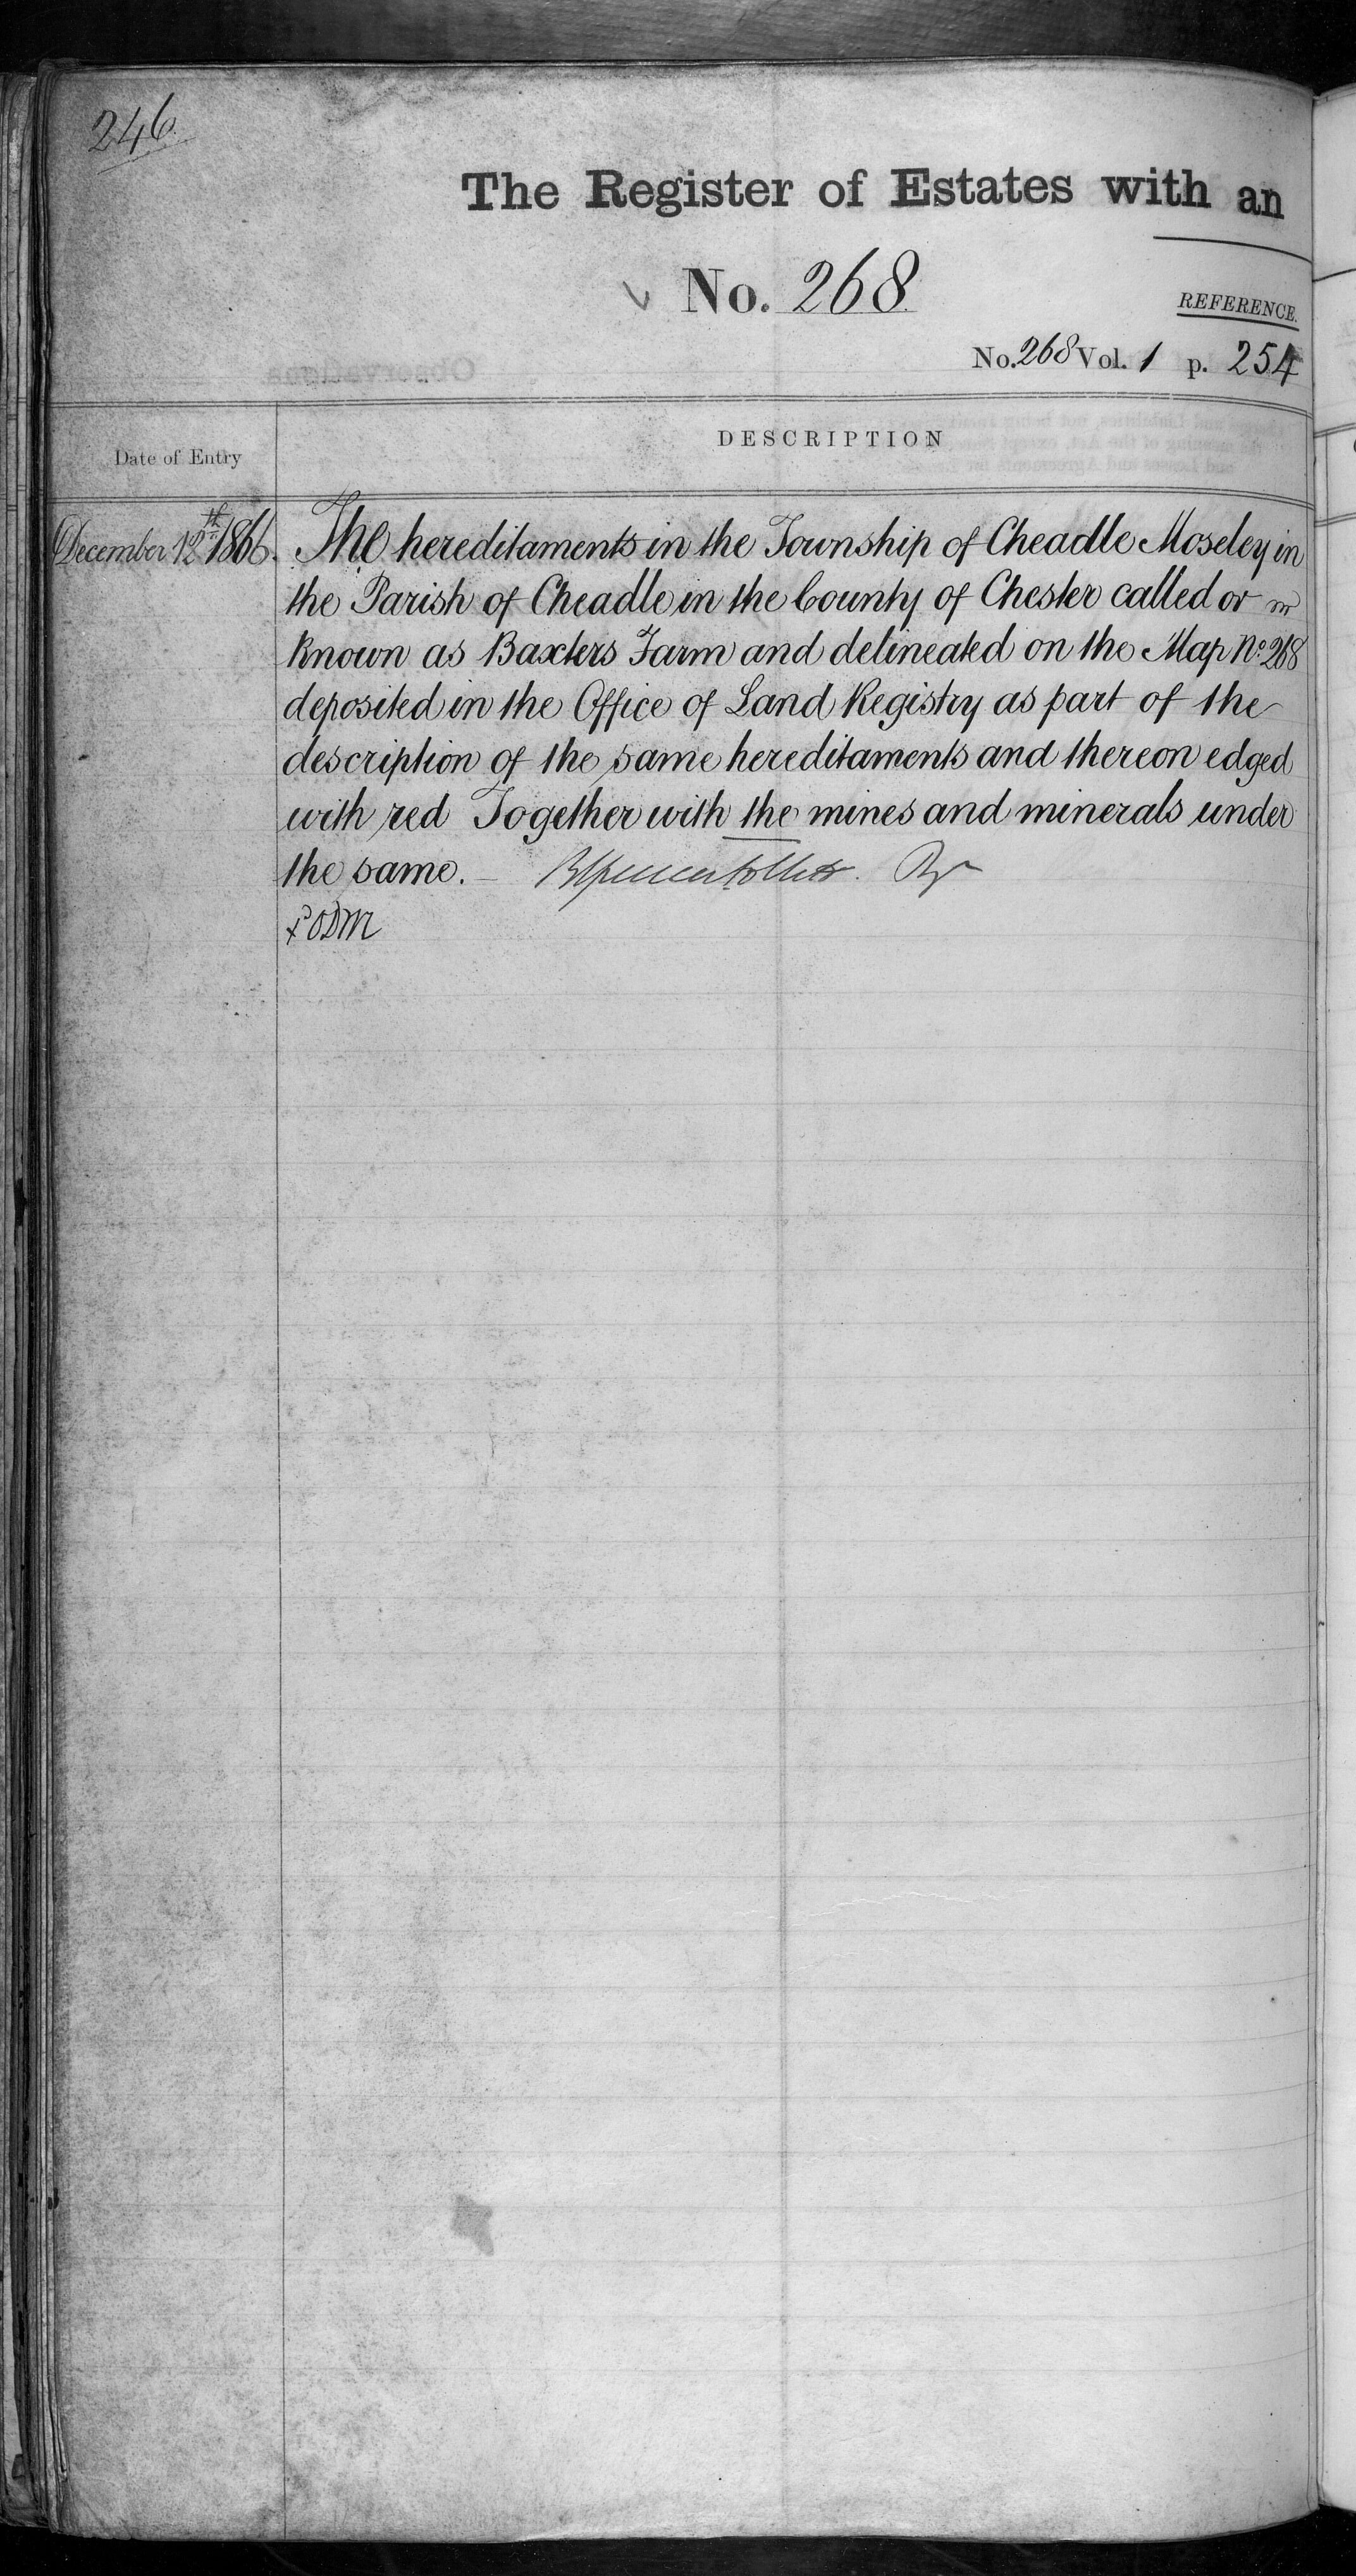 246.
The Register of Estates with an
No. 268
REFERENCE.
No. 268 Vol. 1 p. 254
Date of Entry
DESCRIPTION
December 12th 1866.
The hereditaments in the Township of Cheadle Moseley in
the Parish of Cheadle in the County of Chester called or
known as Baxters Farm and delineated on the Map No. 268
deposited in the Office of Land Registry as part of the
description of the same hereditaments and thereon edged
with red Together with the mines and minerals under
the same.